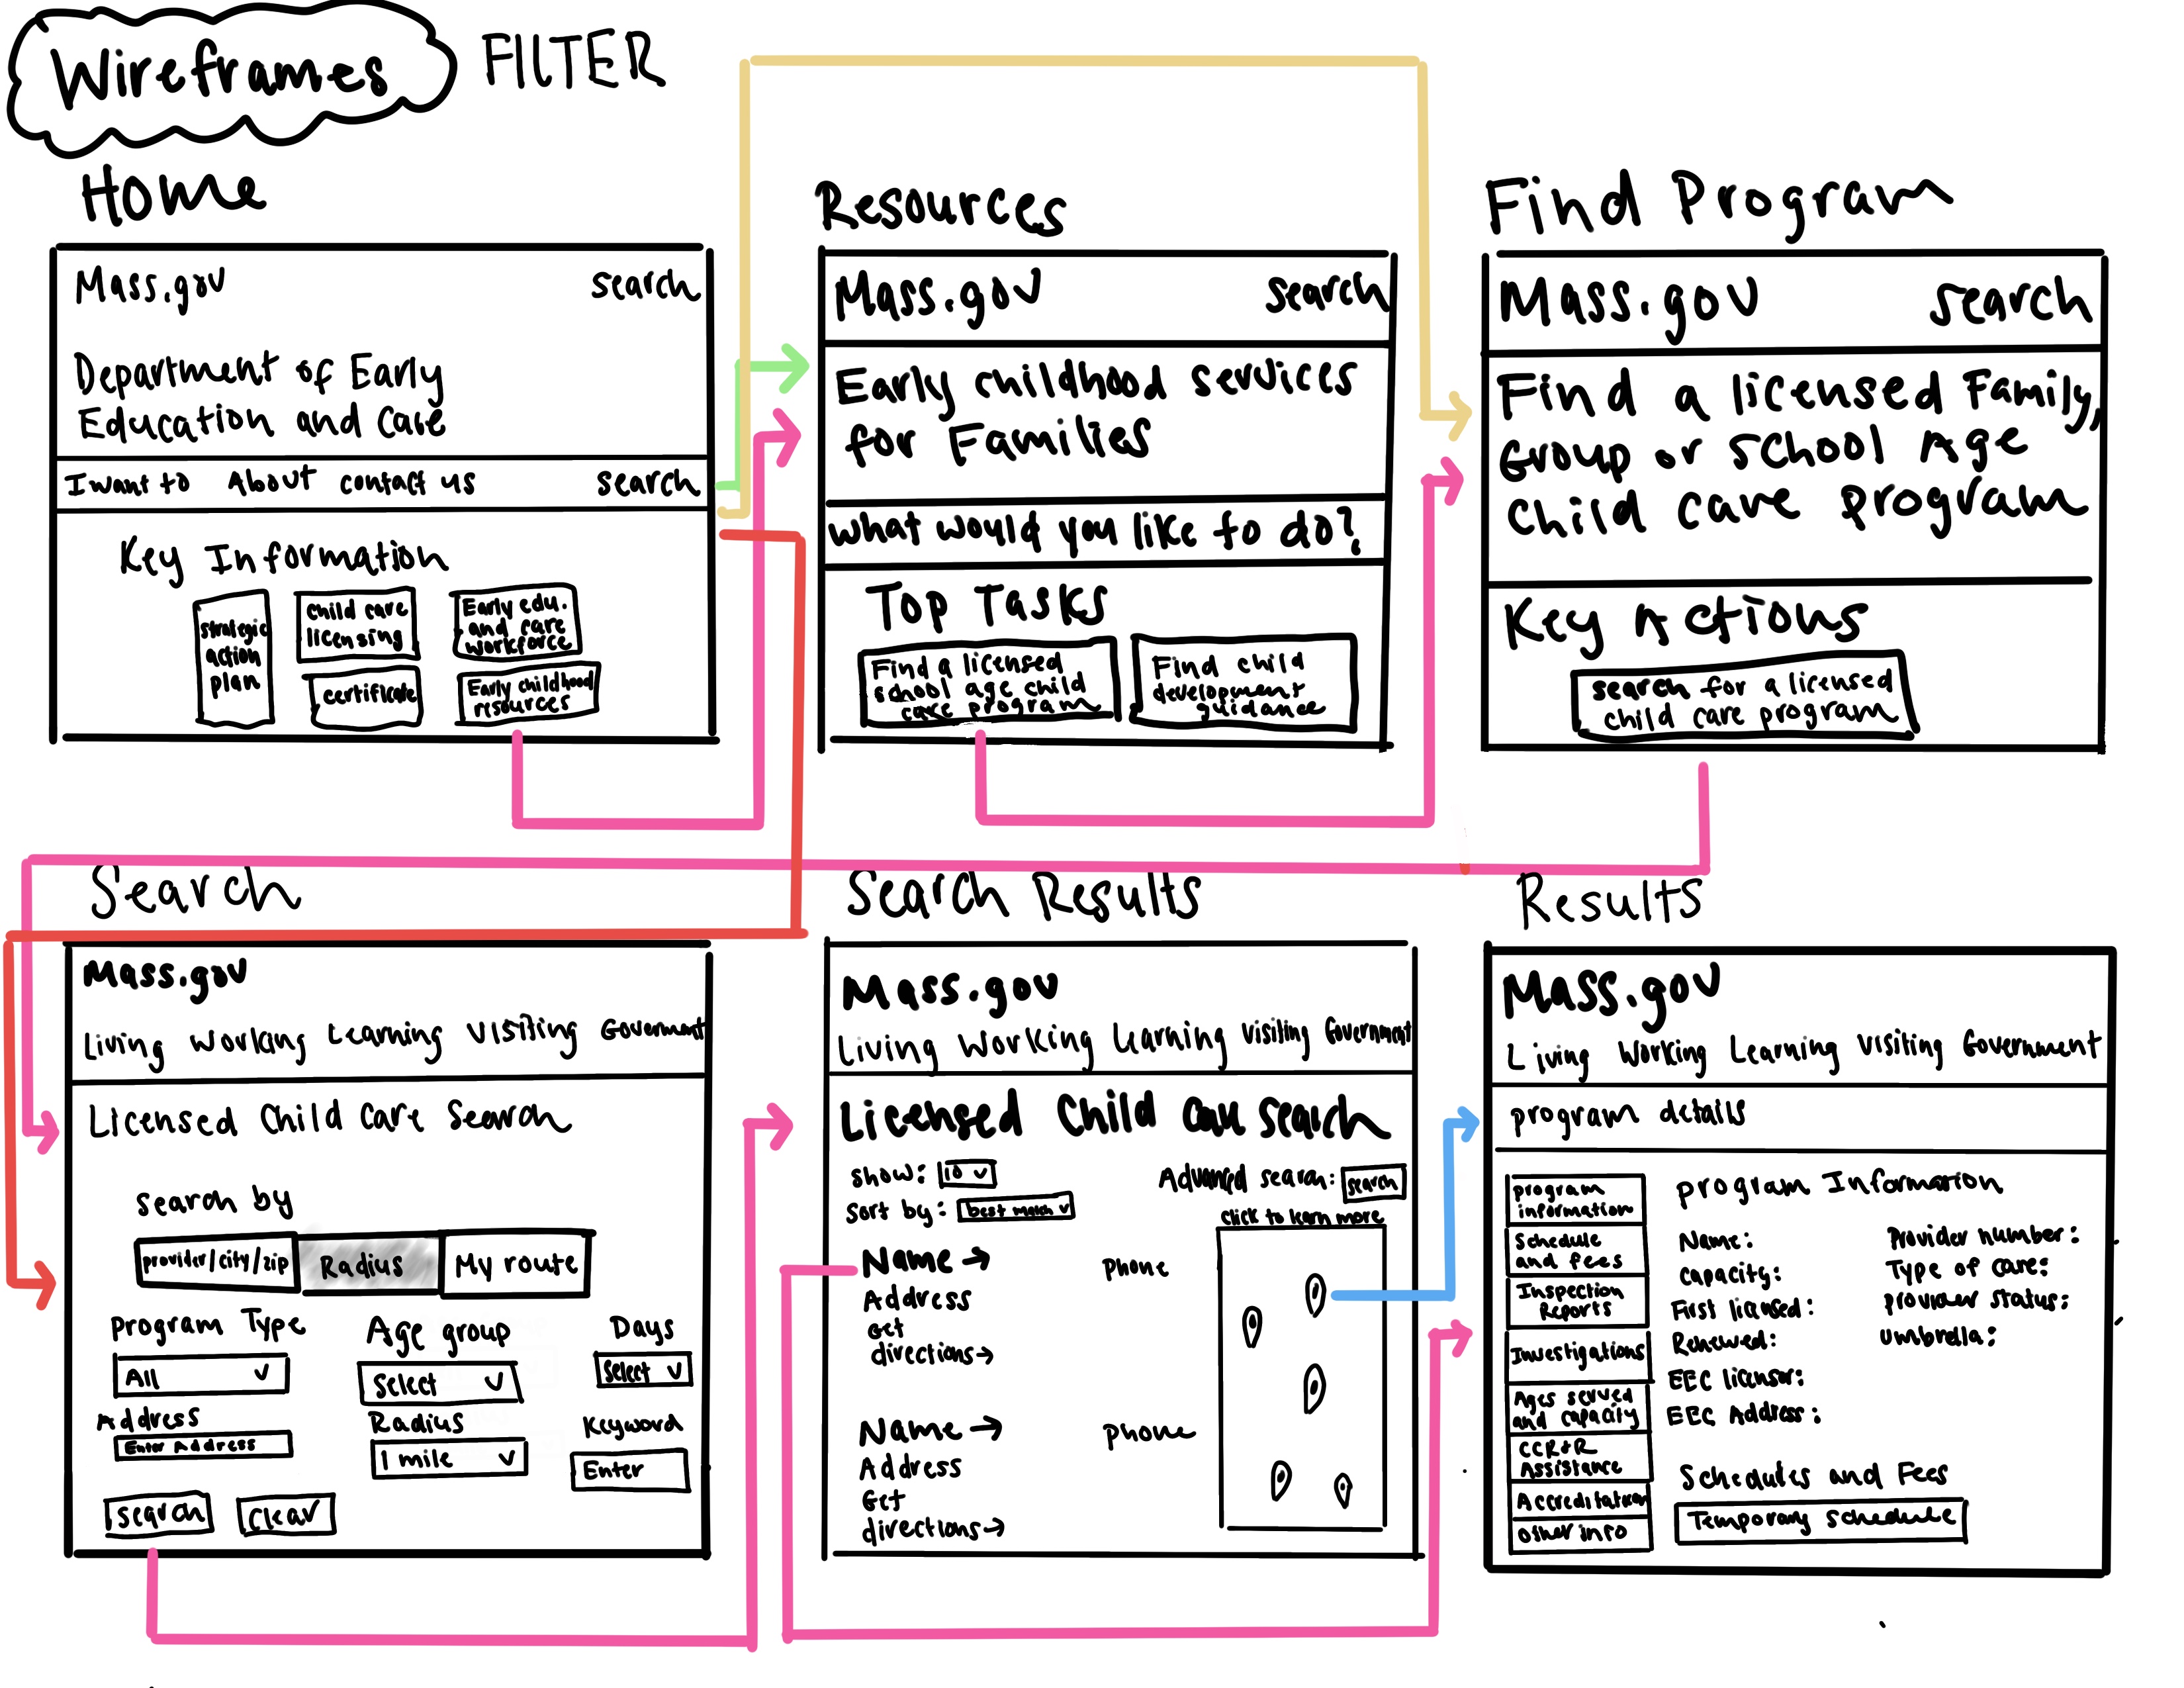 Wireframes
FILTER
Home
Mass.gov search
Department of Early
Education and Care
I want to About contact us search
Key Information
strategic
action
plan
child care
licensing
Early edu.
and care
workforce
certificate
Early childhood
resources
Resources
Mass.gov search
Early childhood services
for Families
what would you like to do?
Top Tasks
Find a licensed
school age child
care program
Find child
development
guidance
Find Program
Mass.gov search
Find a licensed Family,
Group or School Age
child care program
Key Actions
search for a licensed
child care program
Search
Mass.gov
Living Working Learning Visiting Government
Licensed Child Care Search
search by
provider/city/zip Radius My route
Program Type
All
Age group
Select
Days
Select
Address
Enter Address
Radius
1 mile
Keyword
Enter
search clear
Search Results
Mass.gov
Living Working Learning Visiting Government
Licensed Child Care Search
show: 10
Sort by: best match
Advanced search: search
click to learn more
Name → phone
Address
Get
directions→
Name → phone
Address
Get
directions→
Results
Mass.gov
Living Working Learning Visiting Government
program details
program
information
Schedule
and fees
Inspection
Reports
Investigations
Ages served
and capacity
CCR+R
Assistance
Accreditation
other info
program Information
Name: Provider number:
capacity: Type of care:
First licensed: provider status:
Renewed: umbrella:
EEC licensor:
EEC Address:
Schedules and Fees
Temporary schedule